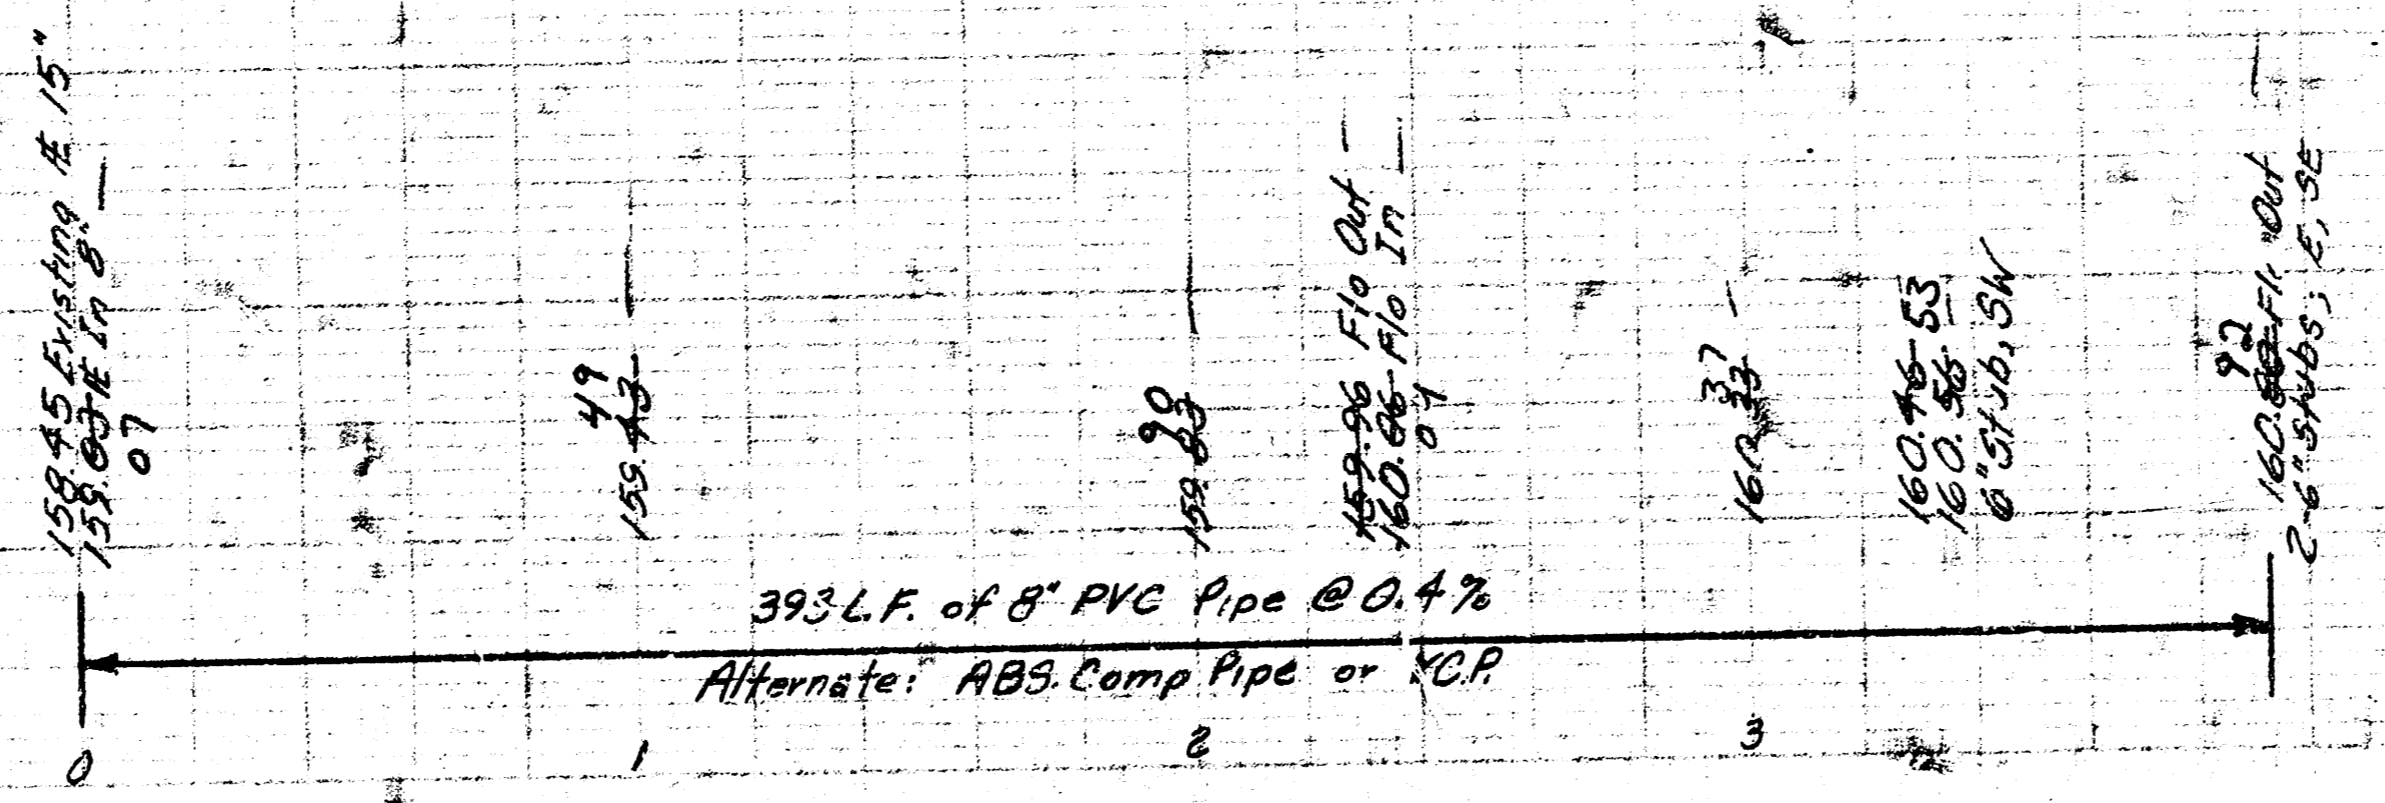 158.45 Existing IE 15"
159.03 IE In 8"
07
49
159.43
90
159.83
159.96 Flo Out
160.06 Flo In
04
37
160.23
160.46 53
160.56
6" Stub, SW
92
160. Out
2-6" Stubs; E, SE
393 L.F. of 8" PVC Pipe @ 0.4%
Alternate: ABS. Comp Pipe or V.C.P.
0 1 2 3